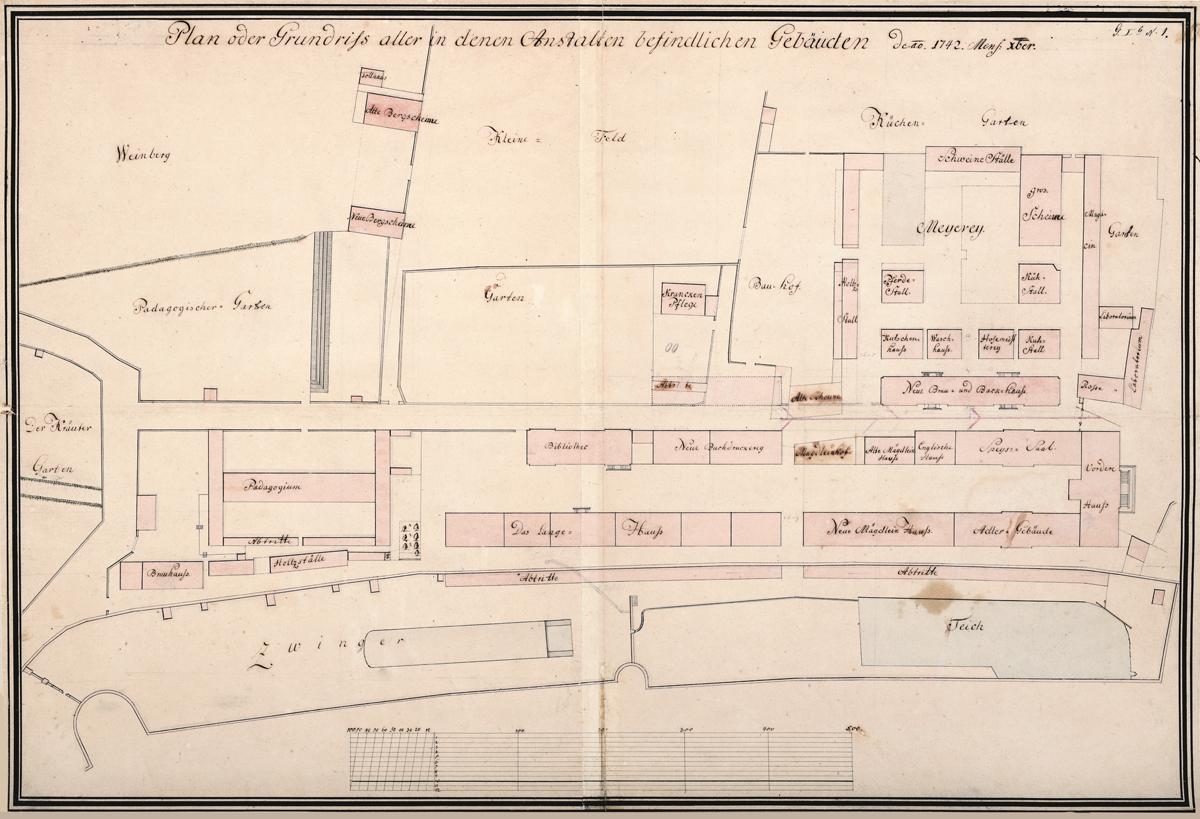 Plan oder Grundriss aller in denen Anstalten befindlichen Gebäuden
1742. Mens. Xber.
Alte Bergscheune
Weinberg
Kleine = Feld
Küchen- Garten
Schweine Ställe
gros. Scheune
Maga- cin
Garten
Meyerey.
Neue Bergscheune
Pädagogischer- Garten
Garten
Krancken Pflege
Bau-hof.
Holtz Stall
Pferde- Stall.
Küh- Stall.
Laboratorium
Kutschen hauss
Wasch- hauss.
Kuh- Stall
Laboratorium
Ross-
Neue Brau- und Backe-hauss.
Alte Scheune
Der Kräuter Garten
Bibliothec
Neue Buchdruckerey
Mägdleinhof
Alte Mägdlein Hauss
Englische Hauss
Speise- Saal.
Vorder Hauss
Pädagogium
Das Lange= Hauss
Neue Mägdlein Hauss.
Adler- Gebäude
Abtritte
Brauhauss.
Holtzställe
Abtritte
Abtritte
Zwinger
Teich
100 90 80 70 60 50 40 30 20 10
100
300
400
500